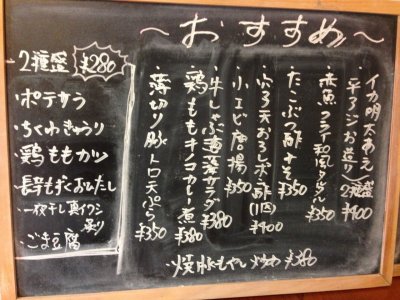 ～おすすめ～
・イカ明太あえ
・平アジお造り 2種盛 ¥400
・赤魚フライ和風タルタル ¥350
・たこぶつ酢みそ ¥350
・穴子天おろしポン酢(1匹) ¥400
・小エビ唐揚 ¥350
・牛しゃぶ海藻サラダ ¥380
・鶏ももキノコカレー煮 ¥380
・薄切り豚トロ天ぷら ¥350
・焼豚もやし炒め ¥380
・2種盛 ¥280
・ポテサラ
・ちくわきゅうり
・鶏ももカツ
・長芋もずくおひたし
・一夜干し真イワシ
・ごま豆腐